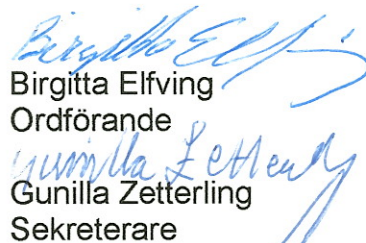 Birgitta Elfving
Birgitta Elfving
Ordförande
Gunilla Zetterling
Gunilla Zetterling
Sekreterare